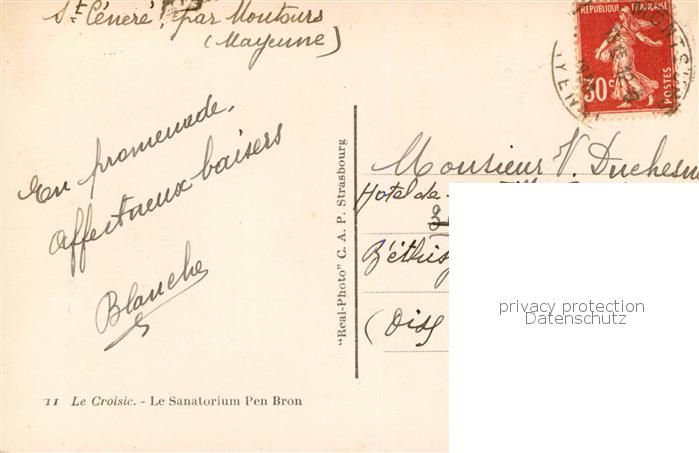 St Céneré, par Montours
(Mayenne)
En promenade.
affectueux baisers
Blanche
11 Le Croisic. - Le Sanatorium Pen Bron
"Real-Photo" C. A. P. Strasbourg
REPUBLIQUE FRANÇAISE
30c
POSTES
Monsieur V. Duchesn
Hotel de
Béthis
(Oise
privacy protection
Datenschutz